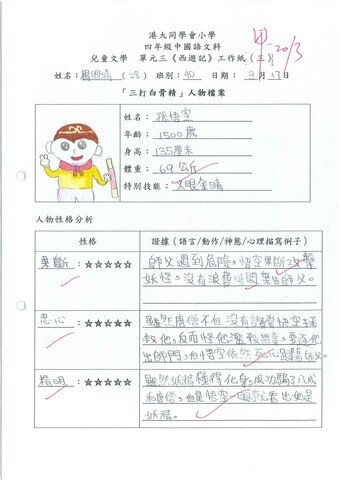 港大同學會小學
四年級中國語文科
兒童文學 單元三《西遊記》工作紙(三)
甲 20/3
姓名: (28) 班別: 4D 日期: 3月17日
「三打白骨精」人物檔案
姓名: 孫悟空
年齡: 1500歲
身高: 135厘米
體重: 69公斤
特別技能: 火眼金睛
人物性格分析
性格
證據(語言/動作/神態/心理描寫例子)
果斷 : ★★★★★
師父遇到危險,悟空果斷攻擊
妖怪,沒有浪費時間
忠心 : ★★★★★
雖然唐僧不但沒有
救他,反而怪他濫殺無辜,要逐他
出師門,但悟空依然死心
精明 : ★★★★★
雖然妖精懂得化身,成功騙了八戒
和唐僧,但是悟空一眼就看出她是
妖精。